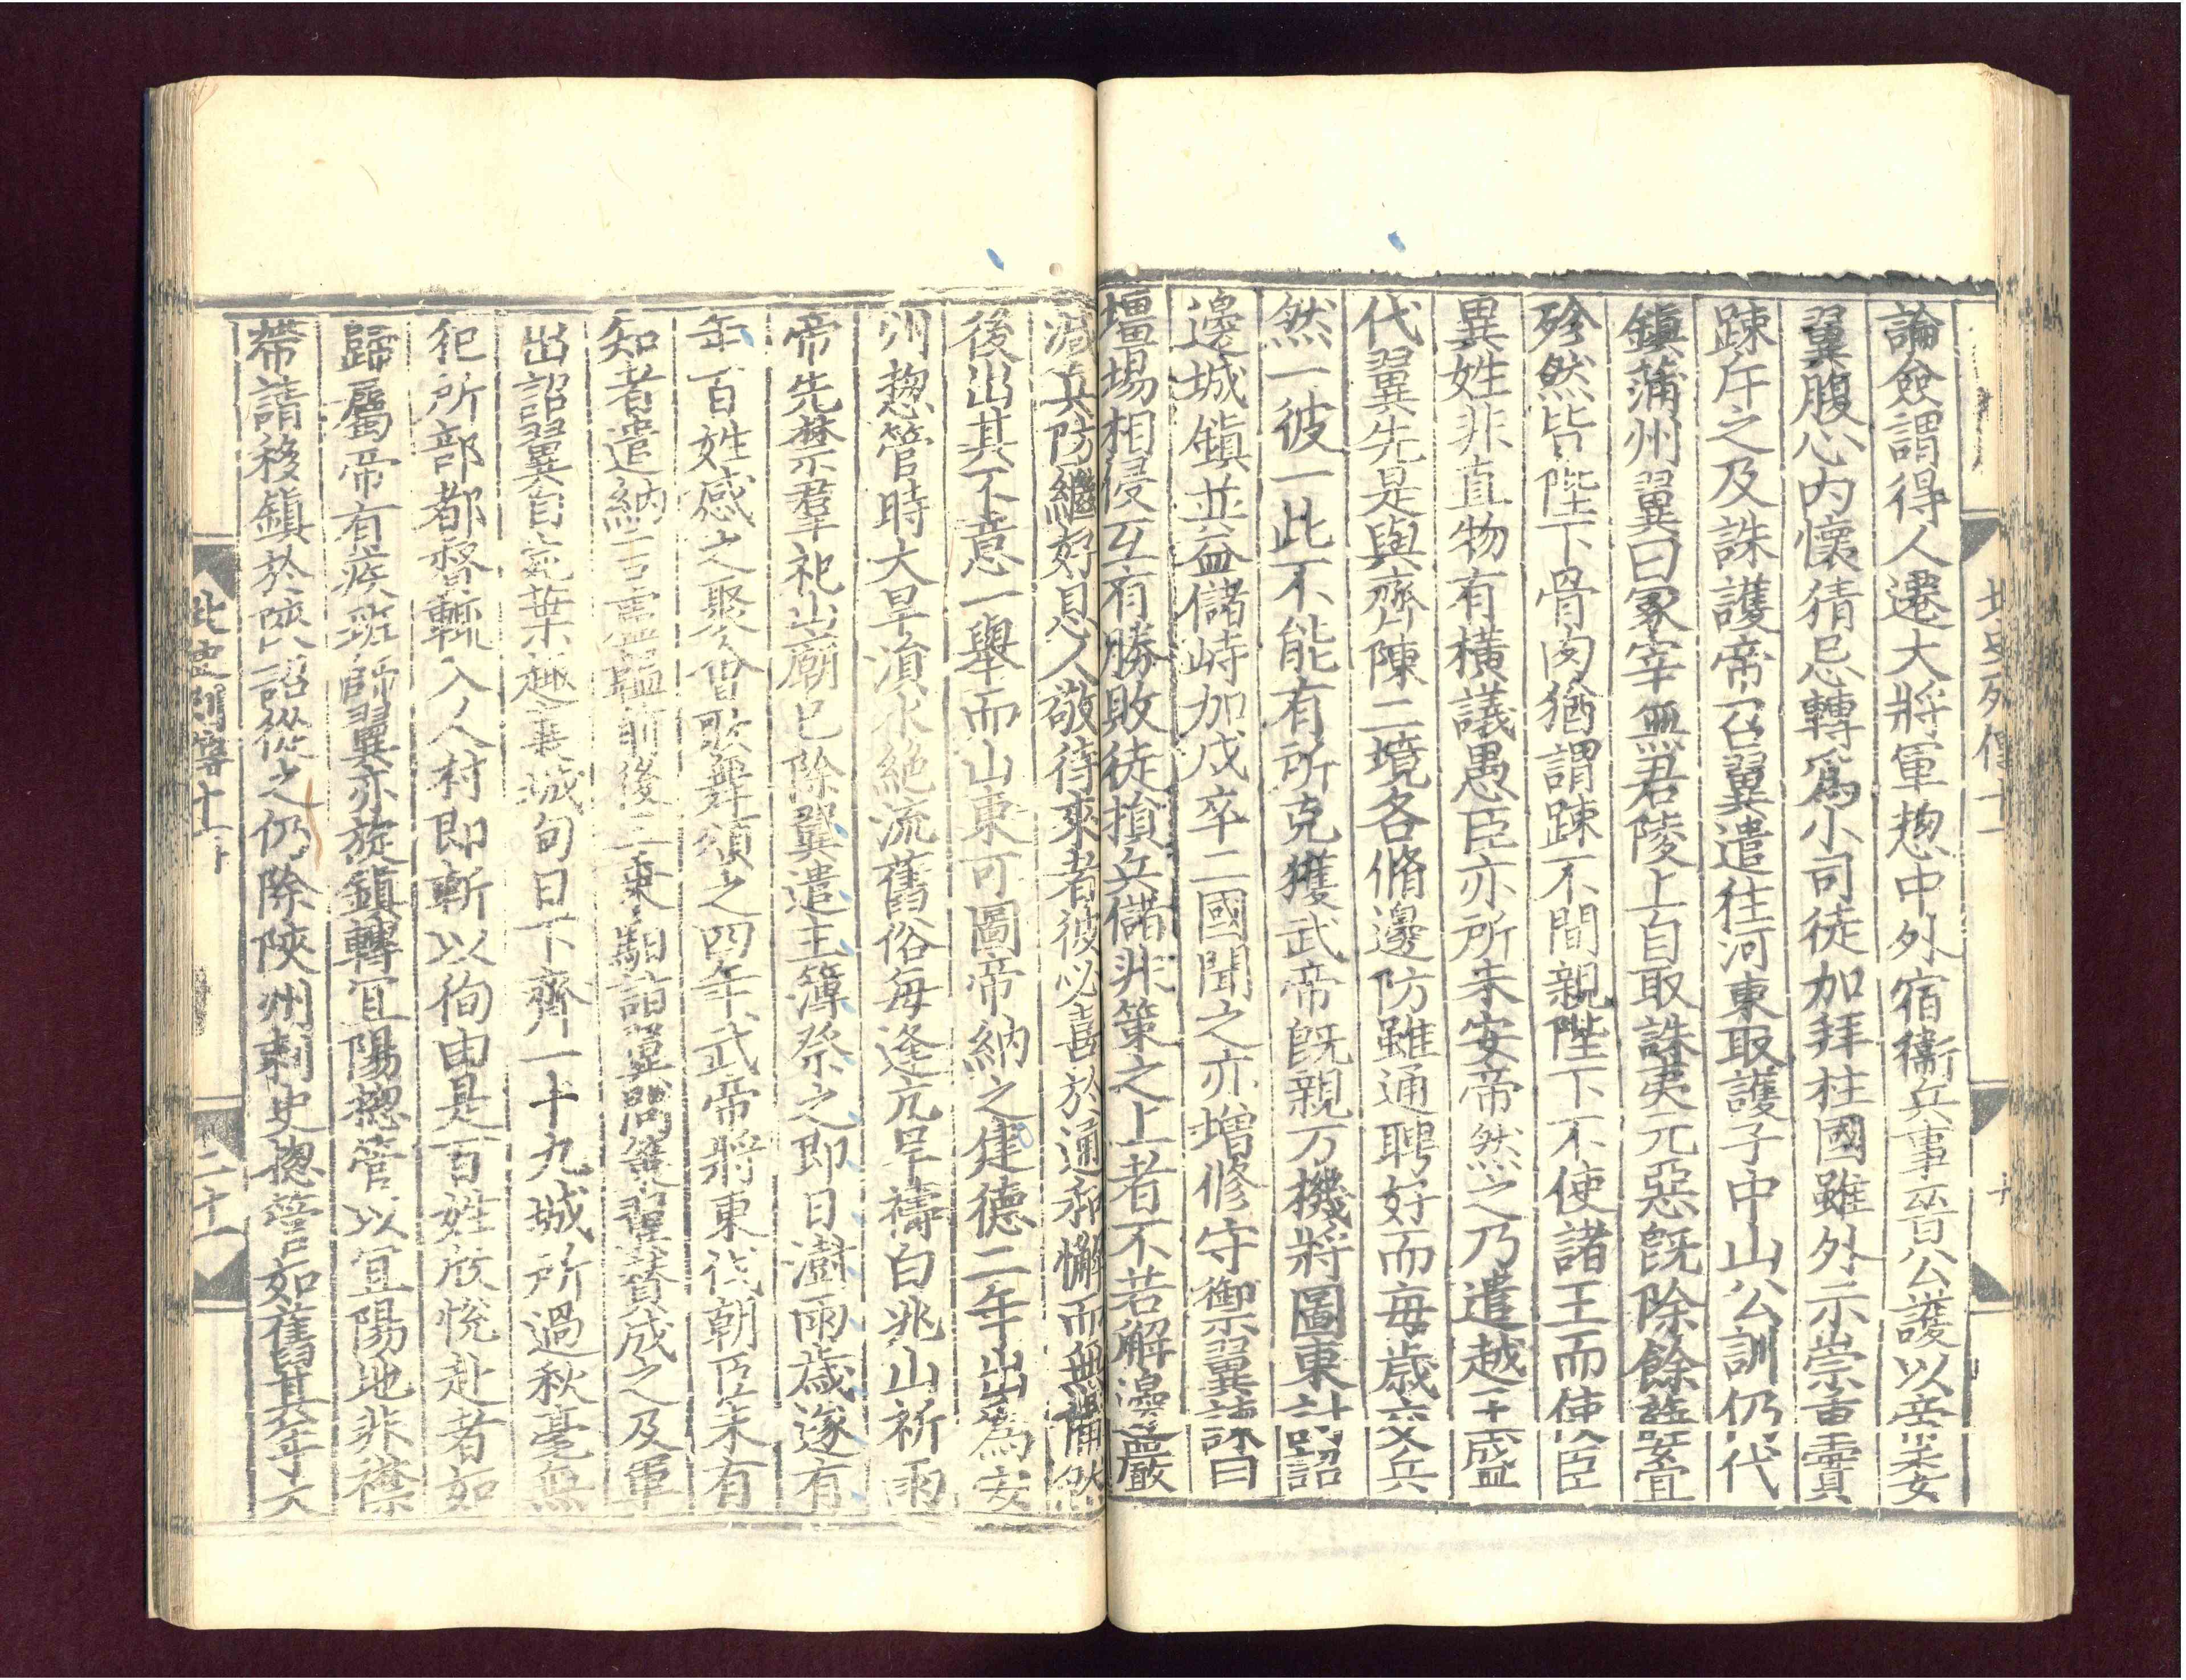 論僉謂得人遷大將軍揔中外宿衞兵事晉公護以帝委
翼腹心內懷猜忌轉爲小司徒加拜柱國雖外示崇重實
踈斥之及誅護帝召翼遣往河東取護子中山公訓仍代
鎮蒲州翼曰冢宰無君陵上自取誅夷元惡旣除餘孼宜
殄然皆陛下骨肉猶謂踈不間親陛下不使諸王而使臣
異姓非直物有橫議愚臣亦所未安帝然之乃遣越王盛
代翼先是與齊陳二境各脩邊防雖通聘好而每歲交兵
然一彼一此不能有所克獲武帝旣親万機將圖東討詔
邊城鎮並益儲峙加戍卒二國聞之亦增修守禦翼諫曰
壃場相侵互有勝敗徒損兵儲非策之上者不若解邊嚴
減兵防繼好息人敬待來者彼必喜於通和懈而無備然
後出其不意一舉而山東可圖帝納之建德二年出爲安
州揔管時大旱溳水絕流舊俗每逢亢旱禱白兆山祈雨
帝先禁羣祀山廟已除翼遣主簿祭之即日澍雨歲遂有
年百姓感之聚會歌舞頌之四年武帝將東伐朝臣未有
知者遣納言盧韞前後三乗馹詣翼問策翼贊成之及軍
出詔翼自宛葉趣襄城旬日下齊一十九城所過秋毫無
犯所部都督輒入人村即斬以徇由是百姓欣悅赴者如
歸屬帝有疾班師翼亦旋鎮轉宜陽揔管以宜陽地非襟
帶請移鎮於陝詔從之仍除陝州刺史揔管如舊其年大
北史列傳十一 二十一